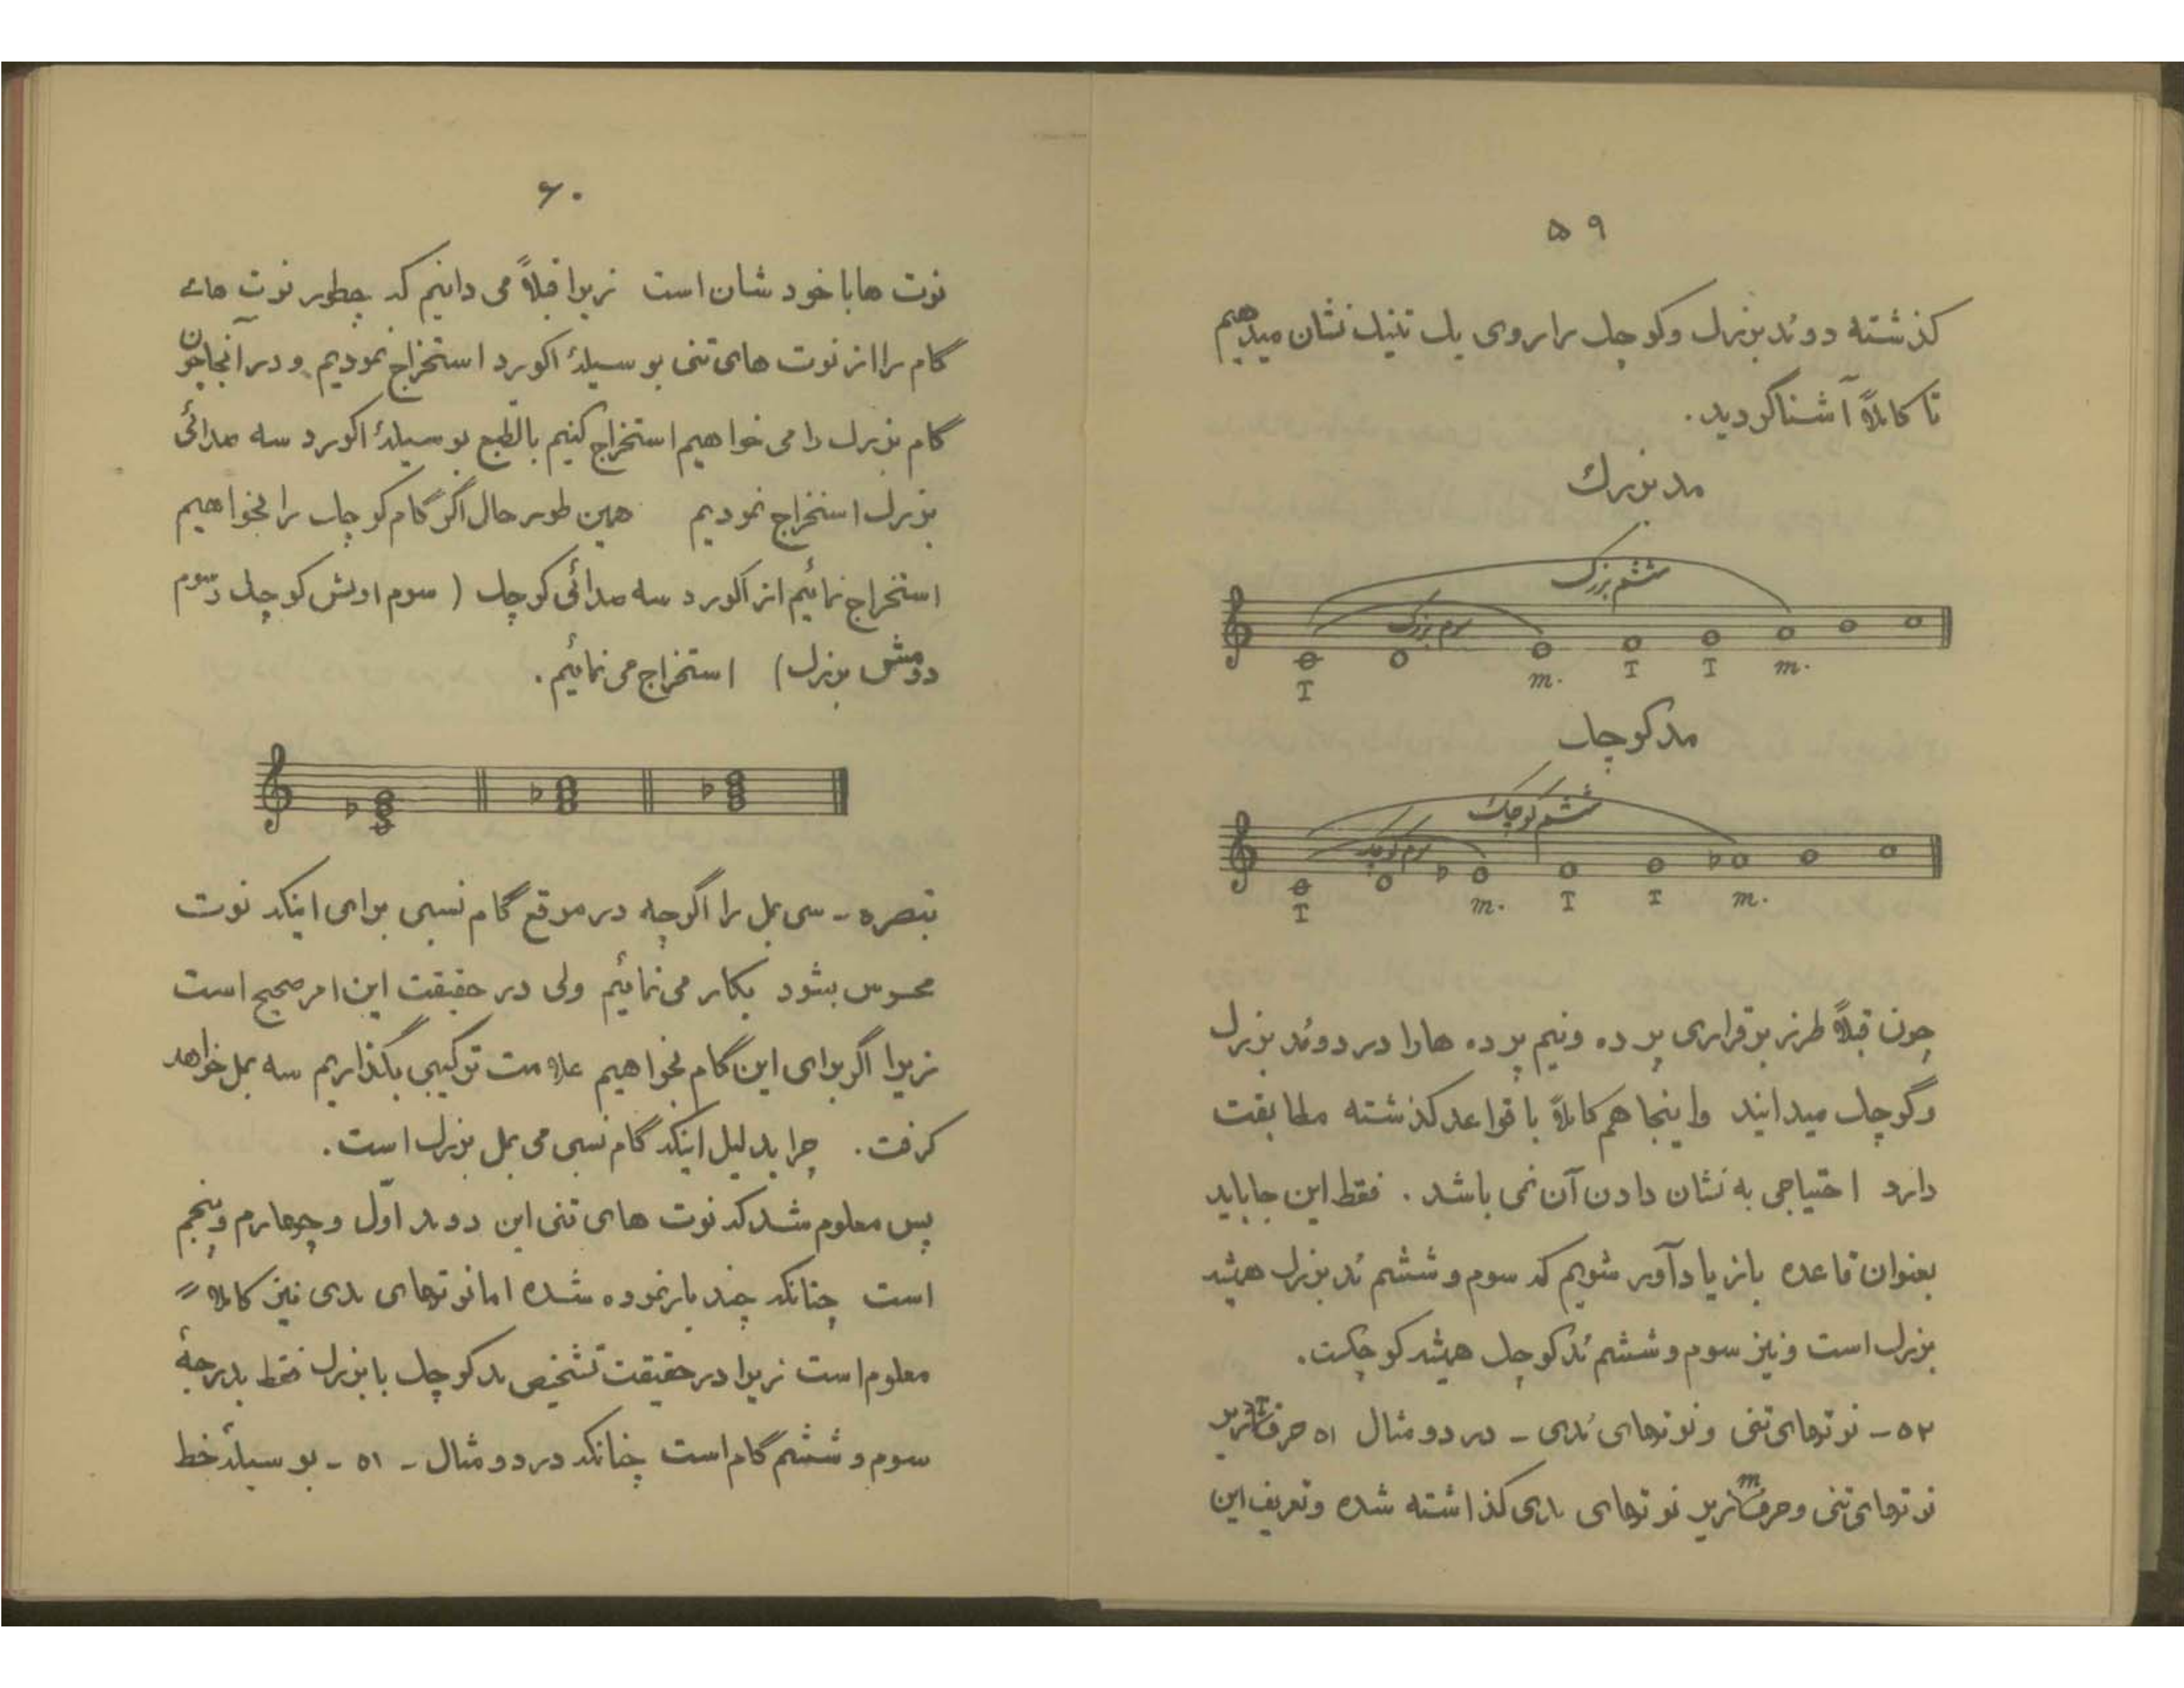 ۵۹
گذشته دو مُد بزرگ و کوچک را روی یک تنیک نشان میدهیم
تا کاملاً آشنا گردید.
مد بزرگ
ششم بزرگ
سوم بزرگ
T m. T T m.
مد کوچک
ششم کوچک
سوم کوچک
T m. T T m.
چون قبلاً طرز برقراری پرده و نیم پرده ها را در دو مُد بزرگ
و کوچک میدانید و اینجا هم کاملاً با قواعد گذشته مطابقت
دارد احتیاجی به نشان دادن آن نمی باشد. فقط این جا باید
بعنوان قاعده باز یادآور شویم که سوم و ششم مُد بزرگ همیشه
بزرگ است و نیز سوم و ششم مُد کوچک همیشه کوچکست.
۵۲ – نوتهای تنی و نوتهای مُدی – در دو مثال ۵۱ حرف T زیر
نوتهای تنی و حرف m زیر نوتهای مدی گذاشته شده و تعریف این
۶۰
نوت ها با خودشان است زیرا قبلاً می دانیم که چطور نوت های
گام را از نوت های تنی بوسیلهٔ اکورد استخراج نمودیم و در آنجا چون
گام بزرگ را می خواهیم استخراج کنیم بالطبع بوسیلهٔ اکورد سه صدائی
بزرگ استخراج نمودیم همین طور حال اگر گام کوچک را بخواهیم
استخراج نمائیم از آکورد سه صدائی کوچک ( سوم اولش کوچک و سوم
دومش بزرگ) استخراج می نمائیم.
تبصره – سی بمل را اگرچه در موقع گام نسبی برای اینکه نوت
محسوس بشود بکار می نمائیم ولی در حقیقت این امر صحیح است
زیرا اگر برای این گام بخواهیم علامت ترکیبی بگذاریم سه بمل خواهد
گرفت. چرا بدلیل اینکه گام نسبی می بمل بزرگ است.
پس معلوم شد که نوت های تنی این دو مد اوّل و چهارم و پنجم
است چنانکه چند بار نموده شده اما نوتهای مدی نیز کاملاً =
معلوم است زیرا در حقیقت تشخیص مد کوچک با بزرگ فقط بدرجهٔ
سوم و ششم گام است چنانکه در دو مثال – ۵۱ – بوسیلهٔ خط